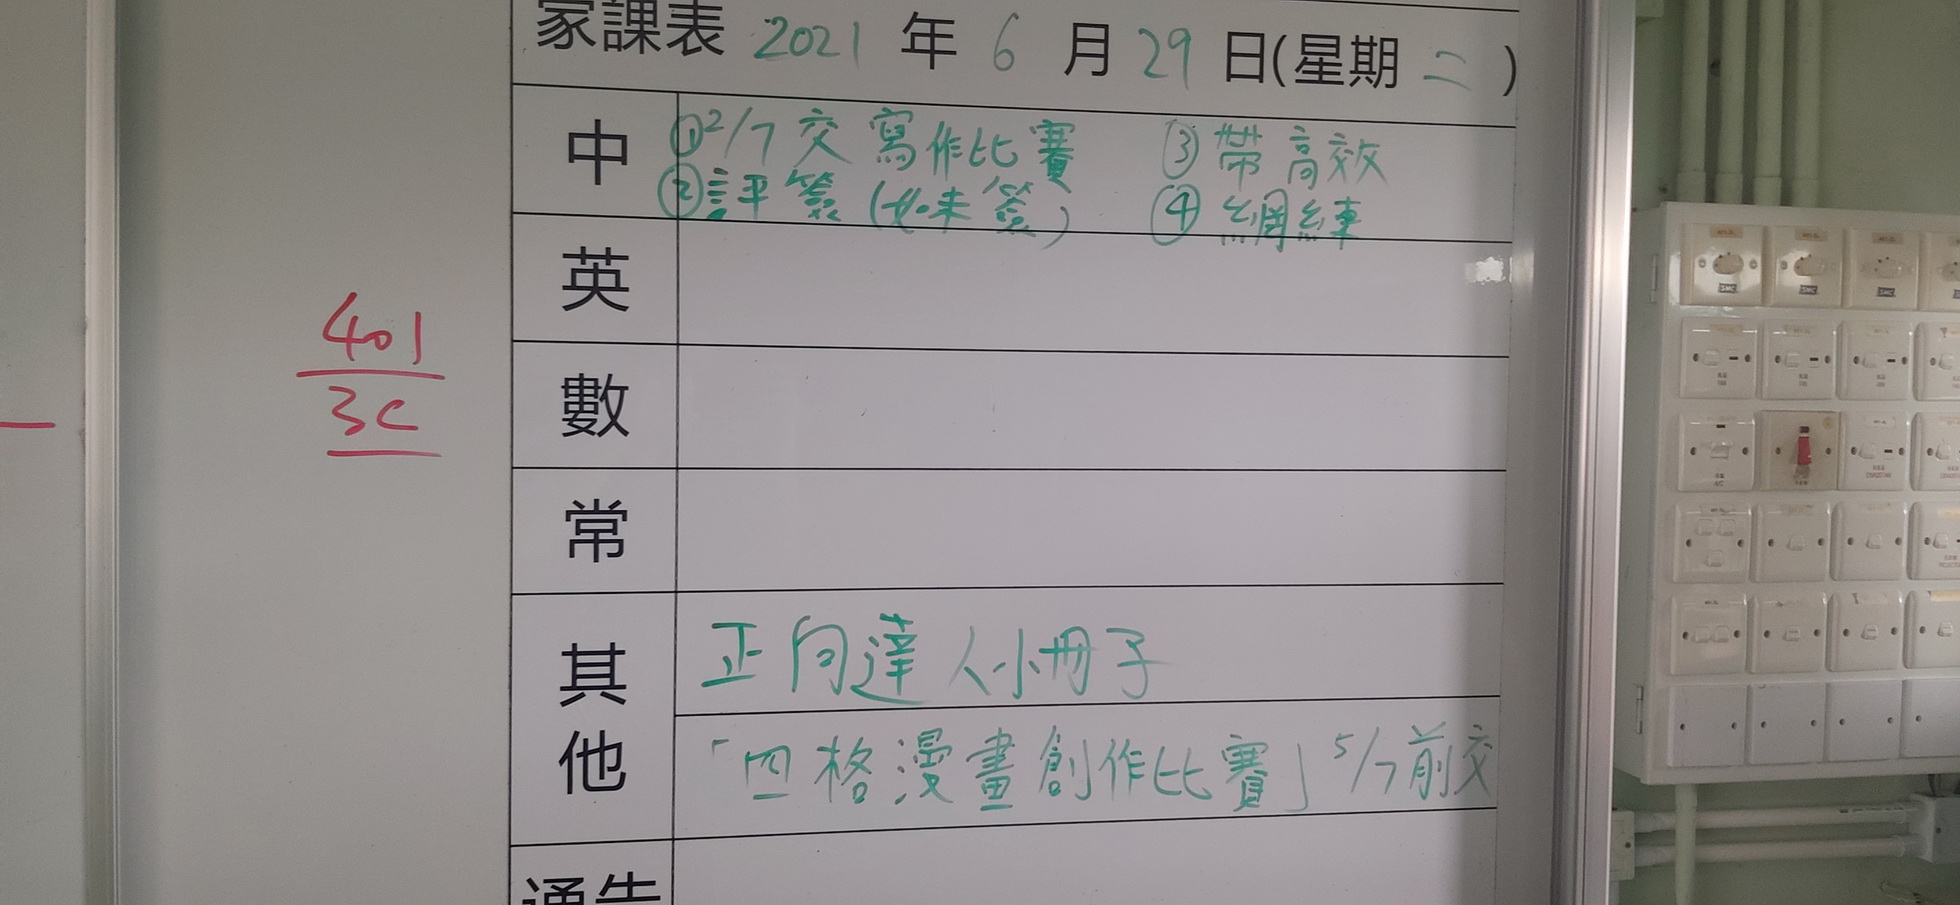 家課表 2021 年 6 月 29 日(星期 二 )
中 ①2/7 交 寫作比賽 ③ 帶高效
②評簽 (如未簽) ④ 網練
英
401
3C
數
常
其他
正向達人小冊子
「四格漫畫創作比賽」5/7前交
通告